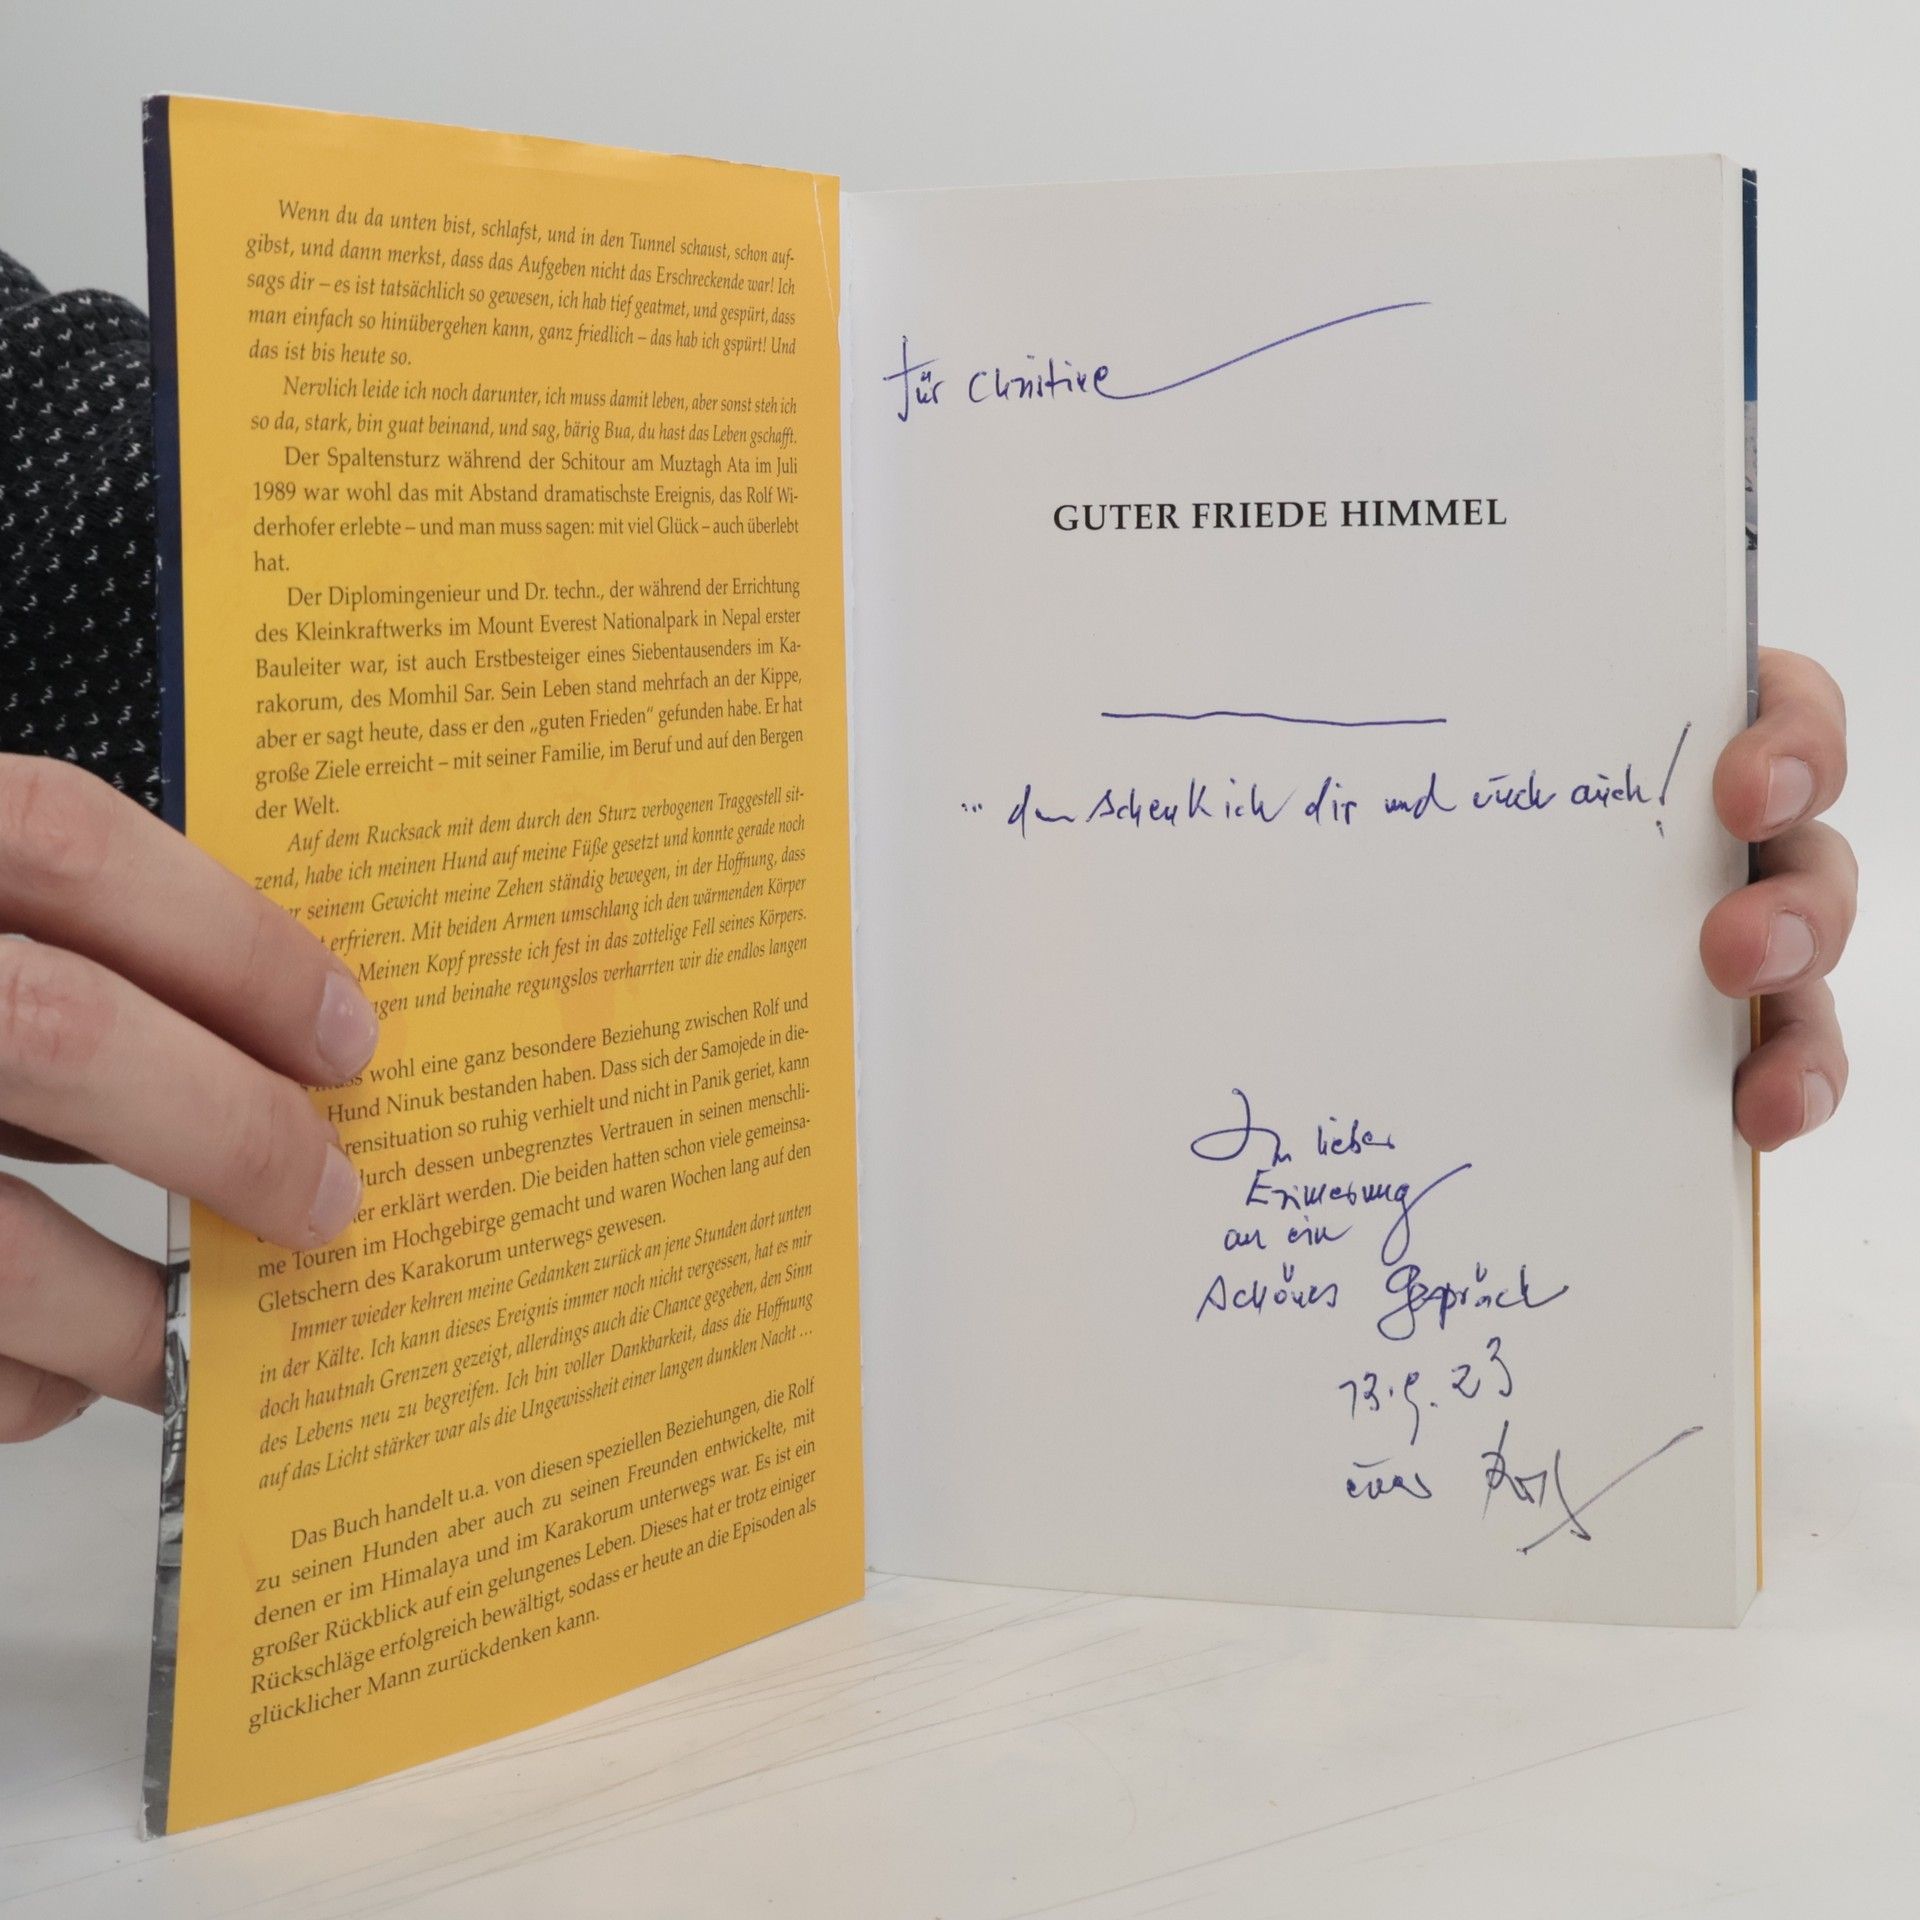 Wenn du da unten bist, schlafst, und in den Tunnel schaust, schon auf-
gibst, und dann merkst, dass das Aufgeben nicht das Erschreckende war! Ich
sags dir – es ist tatsächlich so gewesen, ich hab tief geatmet, und gespürt, dass
man einfach so hinübergehen kann, ganz friedlich – das hab ich gspürt! Und
das ist bis heute so.
Nervlich leide ich noch darunter, ich muss damit leben, aber sonst steh ich
so da, stark, bin guat beinand, und sag, bärig Bua, du hast das Leben gschafft.
Der Spaltensturz während der Schitour am Muztagh Ata im Juli
1989 war wohl das mit Abstand dramatischste Ereignis, das Rolf Wi-
derhofer erlebte – und man muss sagen: mit viel Glück – auch überlebt
hat.
Der Diplomingenieur und Dr. techn., der während der Errichtung
des Kleinkraftwerks im Mount Everest Nationalpark in Nepal erster
Bauleiter war, ist auch Erstbesteiger eines Siebentausenders im Ka-
rakorum, des Momhil Sar. Sein Leben stand mehrfach an der Kippe,
aber er sagt heute, dass er den „guten Frieden“ gefunden habe. Er hat
große Ziele erreicht – mit seiner Familie, im Beruf und auf den Bergen
der Welt.
Auf dem Rucksack mit dem durch den Sturz verbogenen Traggestell sit-
zend, habe ich meinen Hund auf meine Füße gesetzt und konnte gerade noch
seinem Gewicht meine Zehen ständig bewegen, in der Hoffnung, dass
erfrieren. Mit beiden Armen umschlang ich den wärmenden Körper
Meinen Kopf presste ich fest in das zottelige Fell seines Körpers.
und beinahe regungslos verharrten wir die endlos langen
wohl eine ganz besondere Beziehung zwischen Rolf und
Hund Ninuk bestanden haben. Dass sich der Samojede in die-
rensituation so ruhig verhielt und nicht in Panik geriet, kann
durch dessen unbegrenztes Vertrauen in seinen menschli-
erklärt werden. Die beiden hatten schon viele gemeinsa-
me Touren im Hochgebirge gemacht und waren Wochen lang auf den
Gletschern des Karakorum unterwegs gewesen.
Immer wieder kehren meine Gedanken zurück an jene Stunden dort unten
in der Kälte. Ich kann dieses Ereignis immer noch nicht vergessen, hat es mir
doch hautnah Grenzen gezeigt, allerdings auch die Chance gegeben, den Sinn
des Lebens neu zu begreifen. Ich bin voller Dankbarkeit, dass die Hoffnung
auf das Licht stärker war als die Ungewissheit einer langen dunklen Nacht ...
Das Buch handelt u.a. von diesen speziellen Beziehungen, die Rolf
zu seinen Hunden aber auch zu seinen Freunden entwickelte, mit
denen er im Himalaya und im Karakorum unterwegs war. Es ist ein
großer Rückblick auf ein gelungenes Leben. Dieses hat er trotz einiger
Rückschläge erfolgreich bewältigt, sodass er heute an die Episoden als
glücklicher Mann zurückdenken kann.
für Christine
GUTER FRIEDE HIMMEL
... den schenk ich dir und euch auch!
In lieber
Erinnerung
an ein
schönes Gespräch
13.9.23
euer Rolf